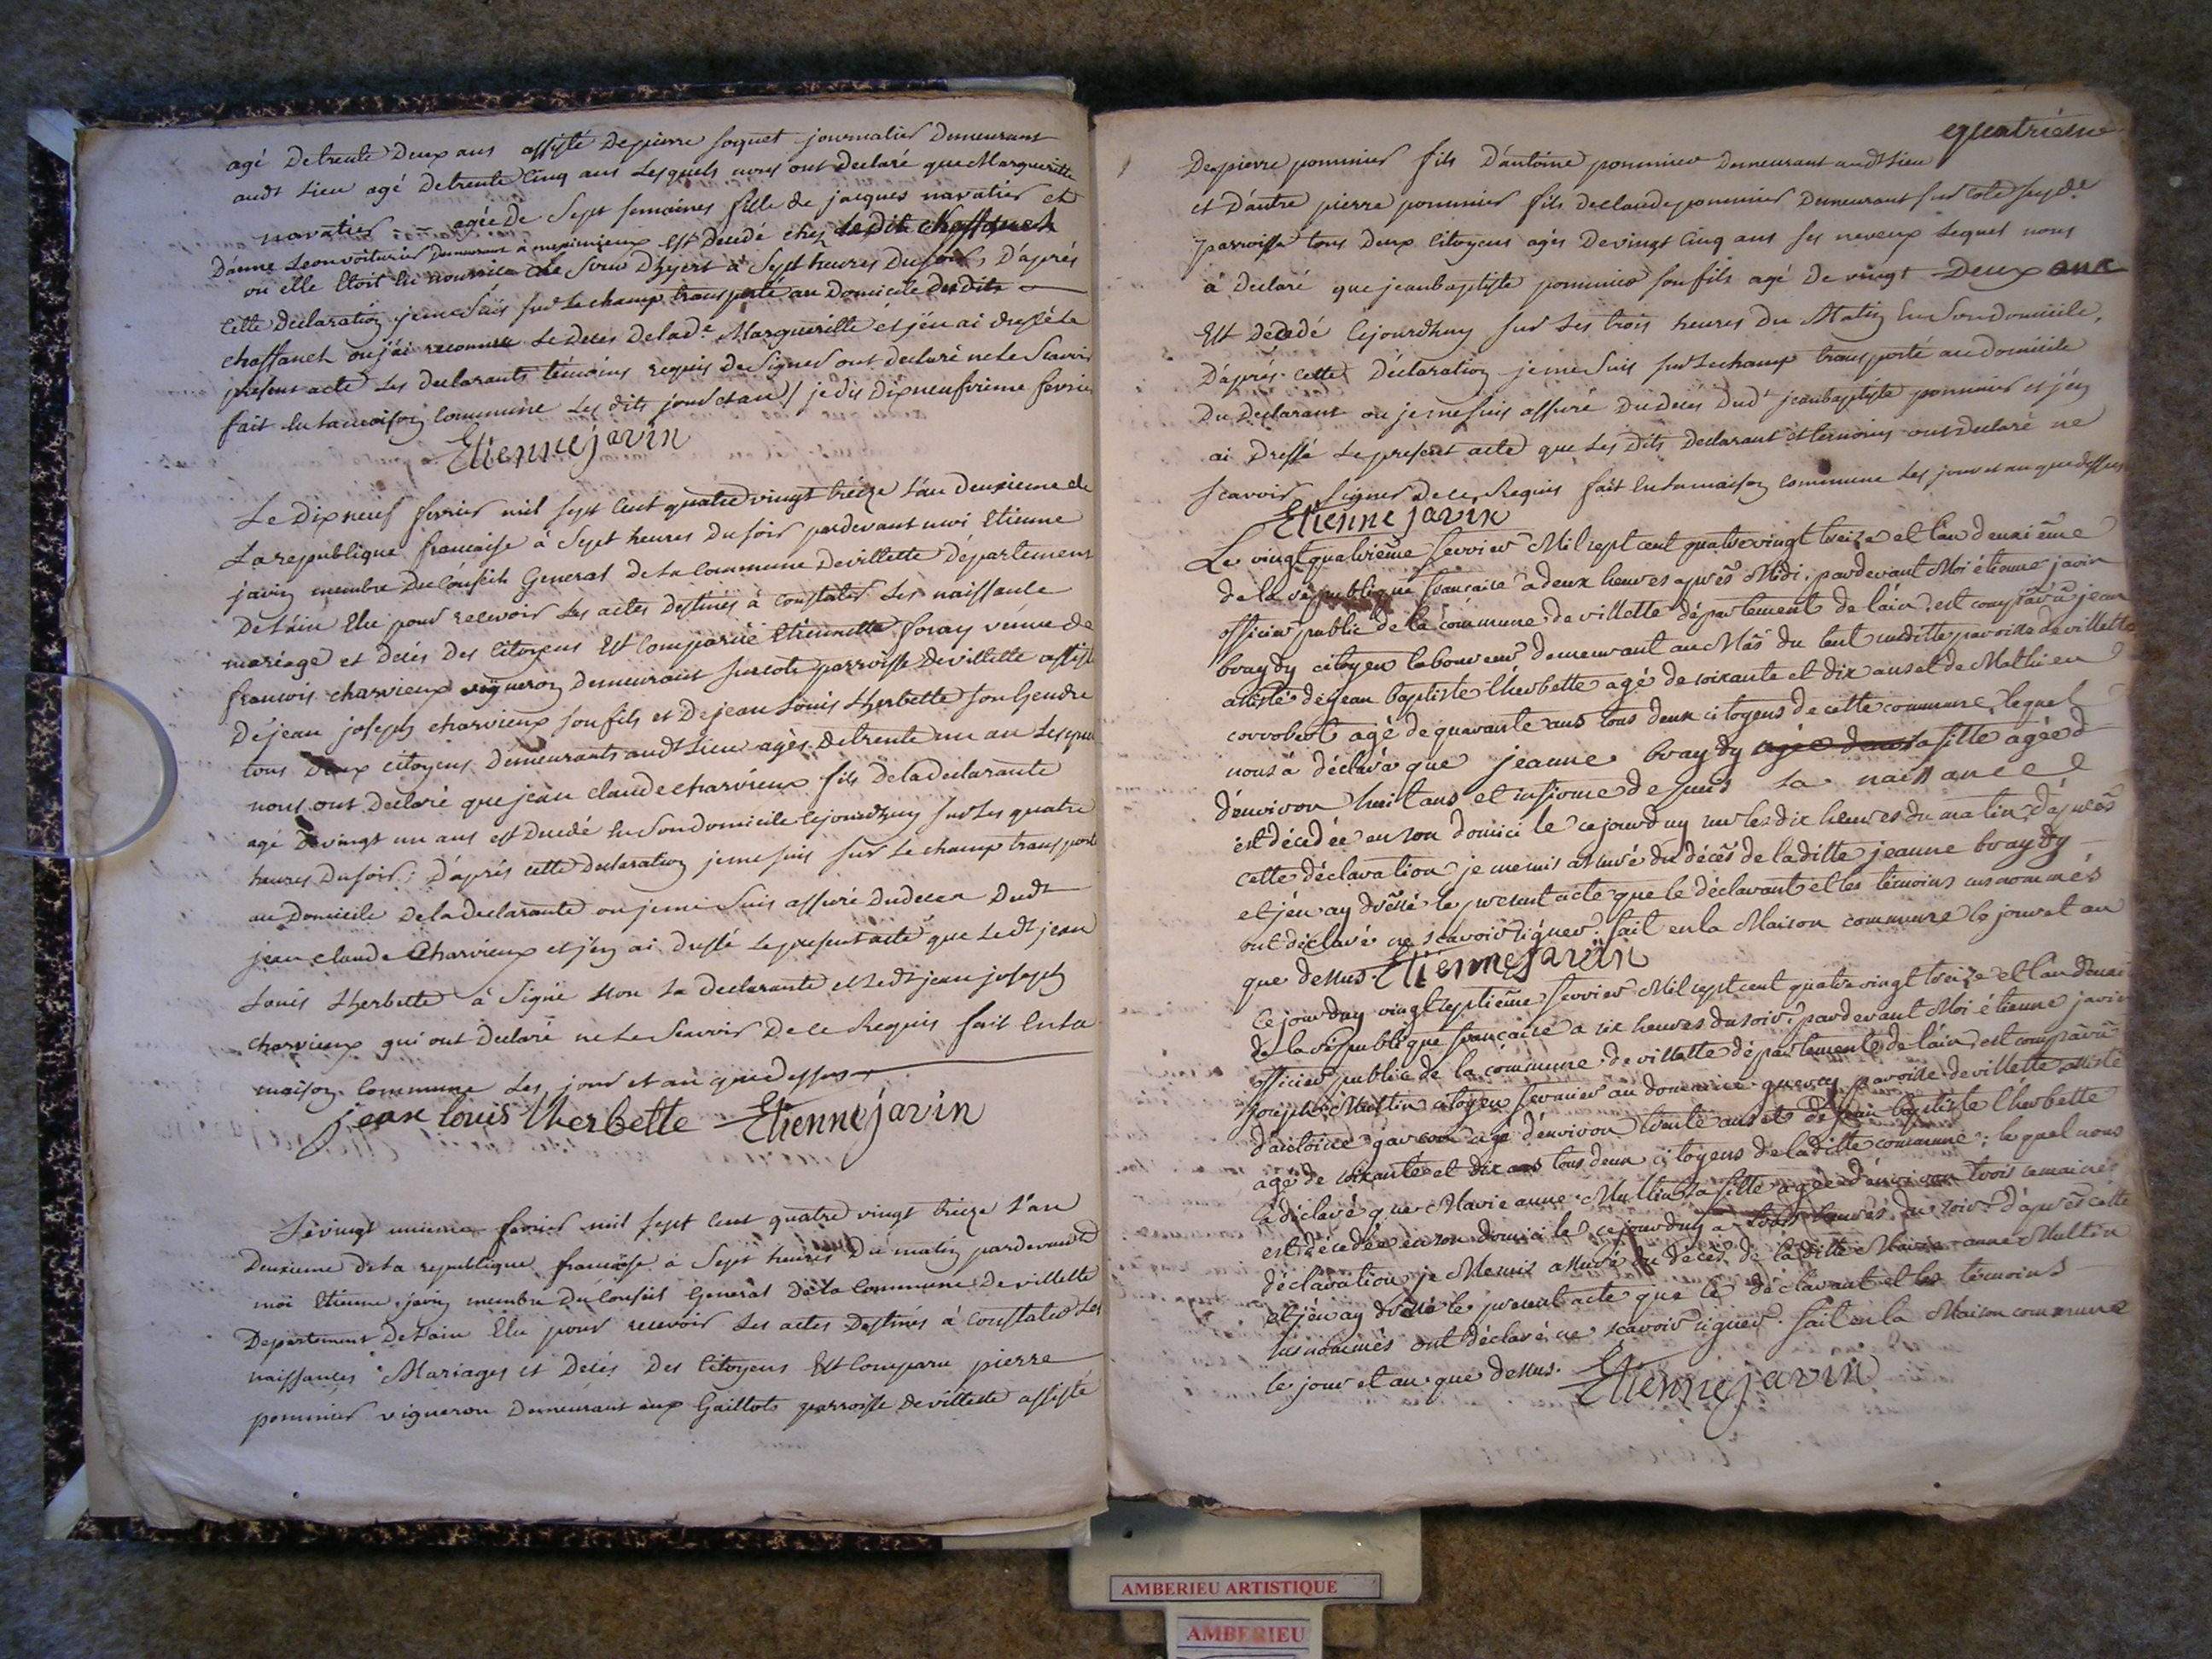 agé de trente Deux ans assisté de pierre foquet journalier demeurant
audt Lieu agé de trente Cinq ans Lesquels nous ont declaré que Margueritte
navatier agée de Sept semaines fille de jacques navatier et
D'anne Leon voiturier demeurant a meximieux est Decedé chez
ou elle Etoit En nourrice Le jour D'hyert à Sept heures Du soir, D'aprés
Cette Declaration je me Suis sur Le champ transporté au Domicile dudits
chaffanet ou j'ai reconnu Le Deces de lade Margueritte et j'en ai dressé Le
present acte Les declarants témoins requis de Signer ont declaré ne Le Scavoir
fait En La maison Commune Les dits jour et an / je dis Dixneufvieme fevrier
Etienne javin
Le Dixneuf fevrier mil sept Cent quatre vingt treize L'an Deuxieme de
La republique francaise à Sept heures Du soir pardevant moi Etienne
javin membre Du Conseil General de La Commune de villette Département
De L'ain Elu pour recevoir Les actes Destinés à Constater Les naissance
mariage et decés Des Citoyens Est Comparüe Etiennette foray veuve de
francois charvieux vigneron demeurant sur cote parroisse de villette assisté
De jean joseph charvieux son fils et De jean Louis Therbette son Gendre
tous Deux citoyens Demeurants audt Lieu agés de trente un an Lesquels
nous ont Declaré que jean claude charvieux fils de la declarante
agé de vingt un ans est Decedé En Son domicile Cejourdhuy sur Les quatre
heures Du soir; D'aprés cette Declaration je me suis sur Le champ transporté
au Domicile de la Declarante ou je me Suis assuré du deces Dudt
jean claude Charvieux et j'en ai dressé Le present acte que Ledt jean
Louis Therbette à Signé Non La Declarante et Ledt jean joseph
charvieux qui ont Declaré ne Le Scavoir De ce Requis fait En La
maison Commune Les jour et an que dessus
jean louis therbette Etienne javin
Le vingt unieme fevrier mil sept Cent quatre vingt treize L'an
Deuxieme de La republique francaise à Sept heures Du matin pardevant
moi Etienne javin membre Du Conseil General de La Commune De villette
Departement De L'ain Elu pour recevoir Les actes Destinés à Constater Les
naissances Mariages et Decés Des Citoyens Est Comparu pierre
pommier vigneron Demeurant aux Gaillots parroisse de villette assisté
quatrième
De pierre pommier fils D'antoine pommier Demeurant audt Lieu
et D'autre pierre pommier fils de claude pommier Demeurant sur cote susde
parroisse tous deux Citoyens agés De vingt Cinq ans ses neveux Lequel nous
à declaré que jean baptiste pommier son fils agé de vingt Deux ans
Est Decedé Cejourdhuy sur Les trois heures Du Matin En Son domicile,
D'aprés cette Déclaration je me Suis sur Le champ transporté au domicile
Du declarant ou je me suis assuré du deces dudt jean baptiste pommier et j'en
ai Dressé Le present acte que Les Dits Declarant et temoins ont declaré ne
scavoir Signer De ce Requis fait En La maison Commune Les jour et an que dessus
Etienne javin
Le vingt quatrième fevrier Mil sept cent quatre vingt treize et l'an deuxième
de la république francaise a deux heures après Midi, pardevant Moi étienne javin
officier public de la commune de villette département de l'ain, est comparû jean
braydy citoyen laboureur demeurant au Mâs du tout susditte paroisse de villette
assisté de jean baptiste l'herbette agé de soixante et dix ans et de Mathieu
corrobert agé de quarante ans tous deux citoyens de cette commune, lequel
nous à déclaré que jeanne braydy sa fille agée d
d'environ huit ans et infirme depuis sa naissance
est décedée en son domicile cejourduy sur les dix heures du matin, d'après
cette déclaration je me suis assuré du décès de laditte jeanne braydy
et j'en ay dressé le present acte que le déclarant et les témoins susnommés
ont déclaré ne scavoir signer. fait en la Maison commune le jour et an
que dessus. Etienne javin
Cejourduy vingt septième fevrier Mil sept cent quatre vingt treize et l'an deuxi
de la république francaise a six heures du soir, pardevant Moi étienne javin
officier public de la commune de villette département de l'ain, est comparû
joseph Multin citoyen fermier au domaine paroisse de villette assisté
d'antoine garcon agé d'environ trente ans et de jean baptiste l'herbette
agé de soixante et dix ans tous deux citoyens de laditte commune, lequel nous
à déclaré que Marie anne Multin sa fille agée d'environ trois semaines
est décedée en son domicile cejourduy a trois heures du soir, d'après cette
déclaration je Me suis assuré du décès de laditte Marie anne Multin
et j'en ay dressé le present acte que le déclarant et les témoins
susnommés ont déclaré ne scavoir signer. fait en la Maison commune
le jour et an que dessus. Etienne javin
AMBERIEU ARTISTIQUE
AMBERIEU